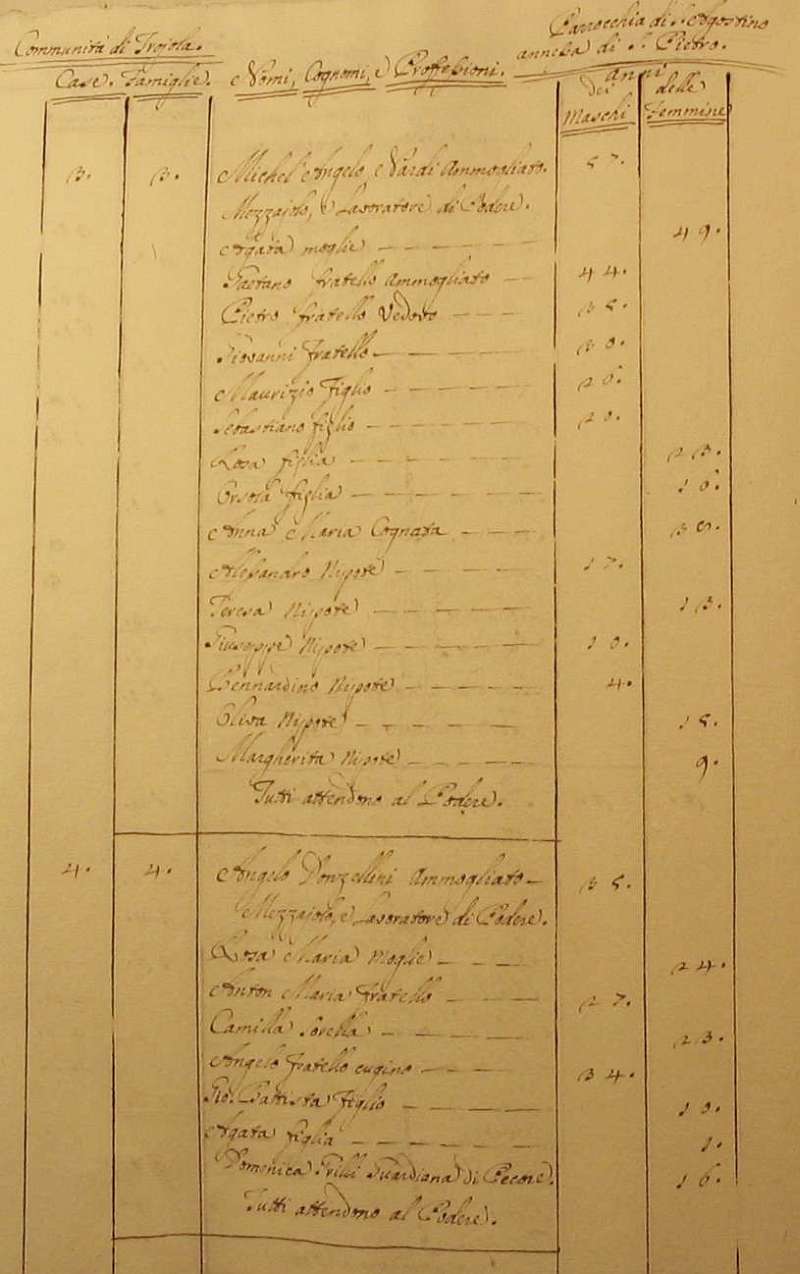 Communità di Troiola. Parocchia di S. Agostino
annessa di S. Pietro.
Case. Famiglie. Nomi, Cognomi, e Proffessioni. Anni
dei Maschi delle Femmine
3. 3. Michel' Angelo Nardi Ammogliato. 57.
Mezzajolo, e Lavoratore di Podere.
Agata moglie 49.
Gaetano fratello Ammogliato 44.
Pietro fratello Vedovo 35.
Giovanni fratello 30.
Maurizio Figlio 20.
Sebastiano figlio 20.
Rosa figlia 23.
Orsola figlia 10.
Anna Maria Cognata 36.
Alesandro Nipote 17.
Teresa Nipote 13.
Giuseppe Nipote 10.
Bennardino Nipote 4.
Elisa Nipote 15.
Margherita Nipote 9.
Tutti attendono al Podere.
4. 4. Angelo Donzellini Ammogliato 35.
Mezzajolo, e Lavoratore di Podere.
Rosa Maria Moglie 24.
Anton Maria fratello 27.
Camilla Sorella 23.
Angelo fratello cugino 34.
Gio. Battista Figlio 10.
Agata figlia 1.
Domenica Grilli Guardiana di Pecore. 16.
Tutti attendono al Podere.